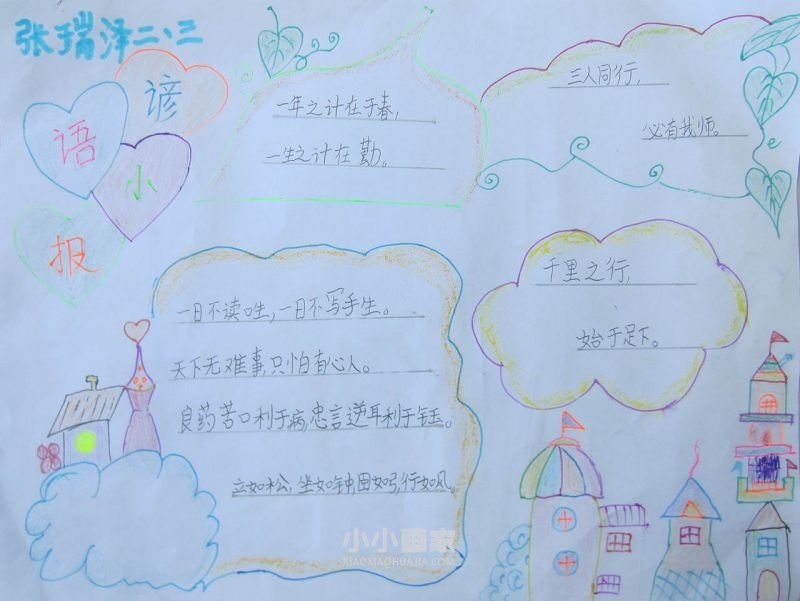 张瑞泽二、三
谚
语
小
报
一年之计在于春,
一生之计在勤。
三人同行,
必有我师。
千里之行,
始于足下。
一日不读口生,一日不写手生。
天下无难事,只怕有心人。
良药苦口利于病,忠言逆耳利于
立如松,坐如钟,如弓,行如风。
小小画家
XIAOXIAOHUAJIA.COM